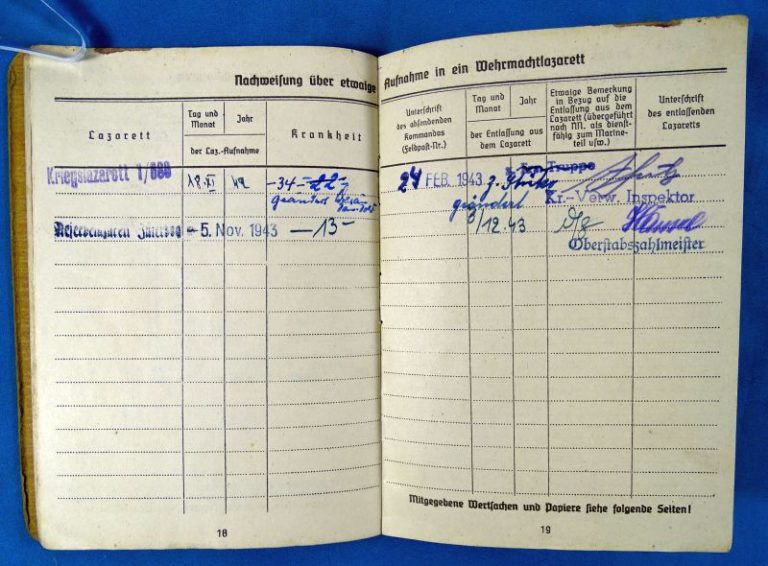 Nachweisung über etwaige Aufnahme in ein Wehrmachtlazarett
Lazarett
Tag und Monat
Jahr
der Laz.-Aufnahme
Krankheit
Unterschrift des absendenden Kommandos (Feldpost-Nr.)
Tag und Monat
Jahr
der Entlassung aus dem Lazarett
Etwaige Bemerkung in Bezug auf die Entlassung aus dem Lazarett (übergeführt nach NN. als dienstfähig zum Marineteil usw.)
Unterschrift des entlassenden Lazaretts
Kriegslazarett 1/680
18. XI
42
-34-
22
24 FEB. 1943
z. Truppe
geändert
Kr.-Verw. Inspektor
Reservelazarett Jüterbog
- 5. Nov. 1943
-13-
3/12.43
Oberstabszahlmeister
Mitgegebene Wertsachen und Papiere siehe folgende Seiten!
18
19